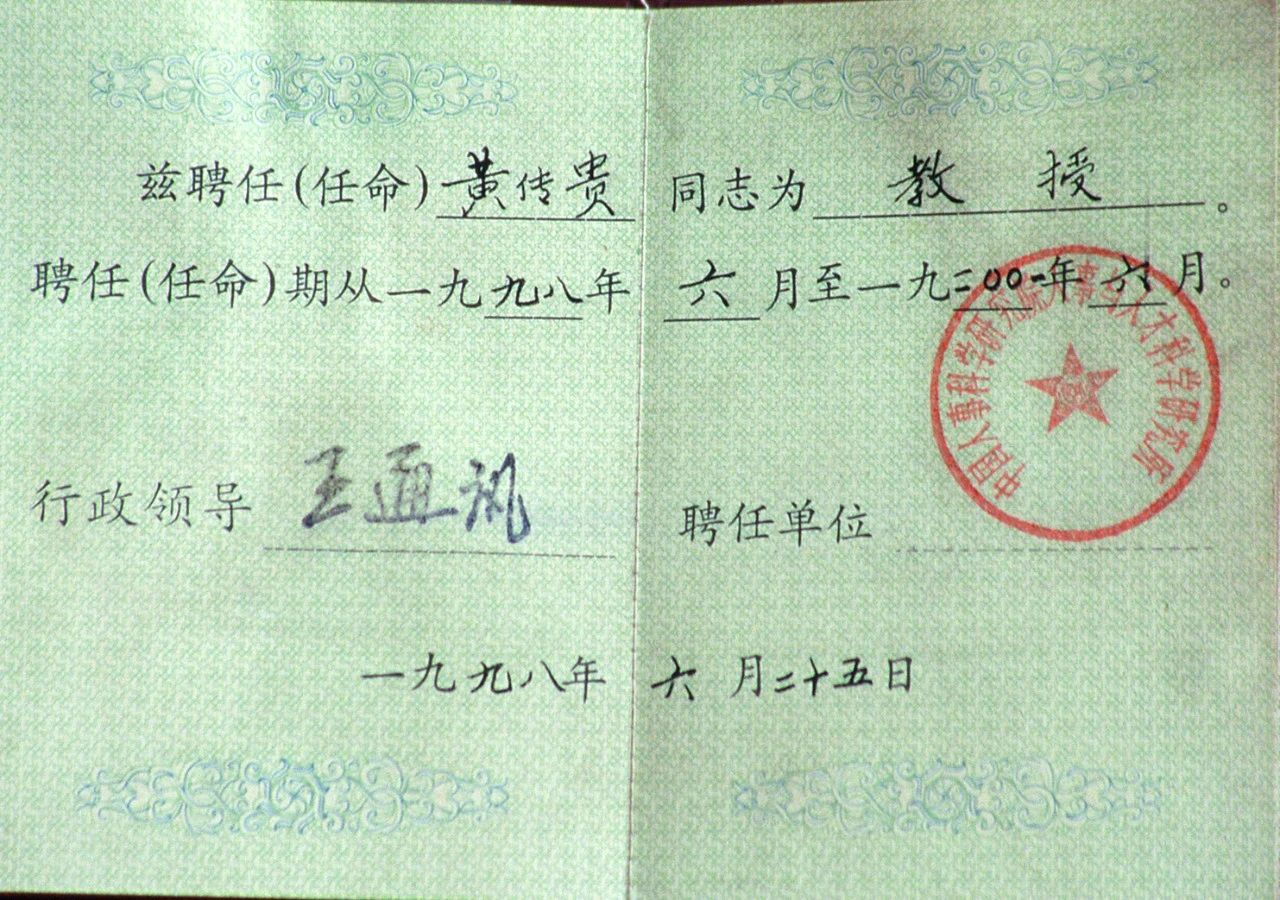 兹聘任(任命)黄传贵 同志为 教授。
聘任(任命)期从一九九八年 六月至一九二00一年六月。
行政领导 王通讯 聘任单位
中国人事科学研究院人事与人才科学研究所
一九九八年 六月二十五日